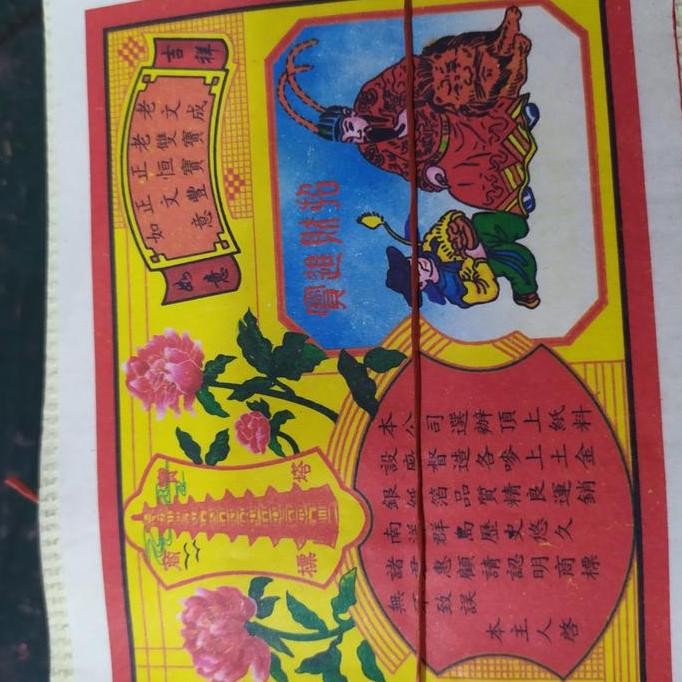 吉祥
老文成
老雙寶
正恒寶
正文豐
如意
如意
招財進寶
寶塔
商標
本公司選辦頂上紙料
設廠督造各嗲上土金
銀紙箔品質精良運銷
南洋群島歷史悠久
諸君惠顧請認明商標
無不致誤
本主人啓